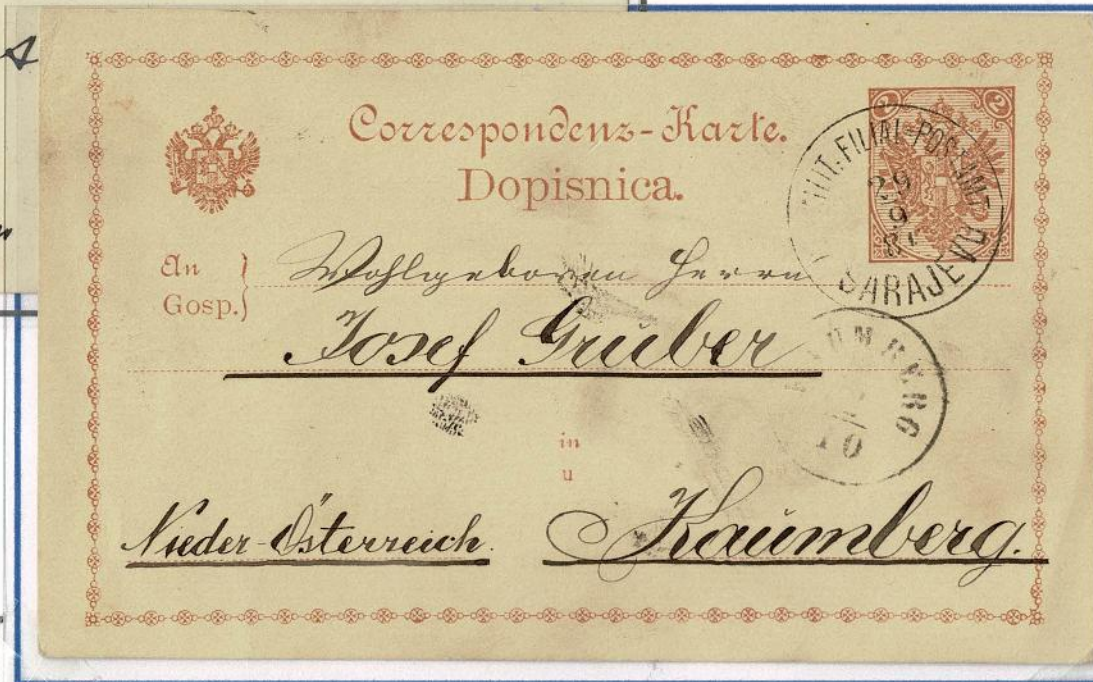 Correspondenz-Karte.
Dopisnica.
2 2
MILIT. FILIAL-POSTAMT
29
9
SARAJEVO
An
Gosp.
Wohlgeboren Herrn
Josef Gruber
KAUMBERG
10
in
u
Nieder-Österreich.
Kaumberg.